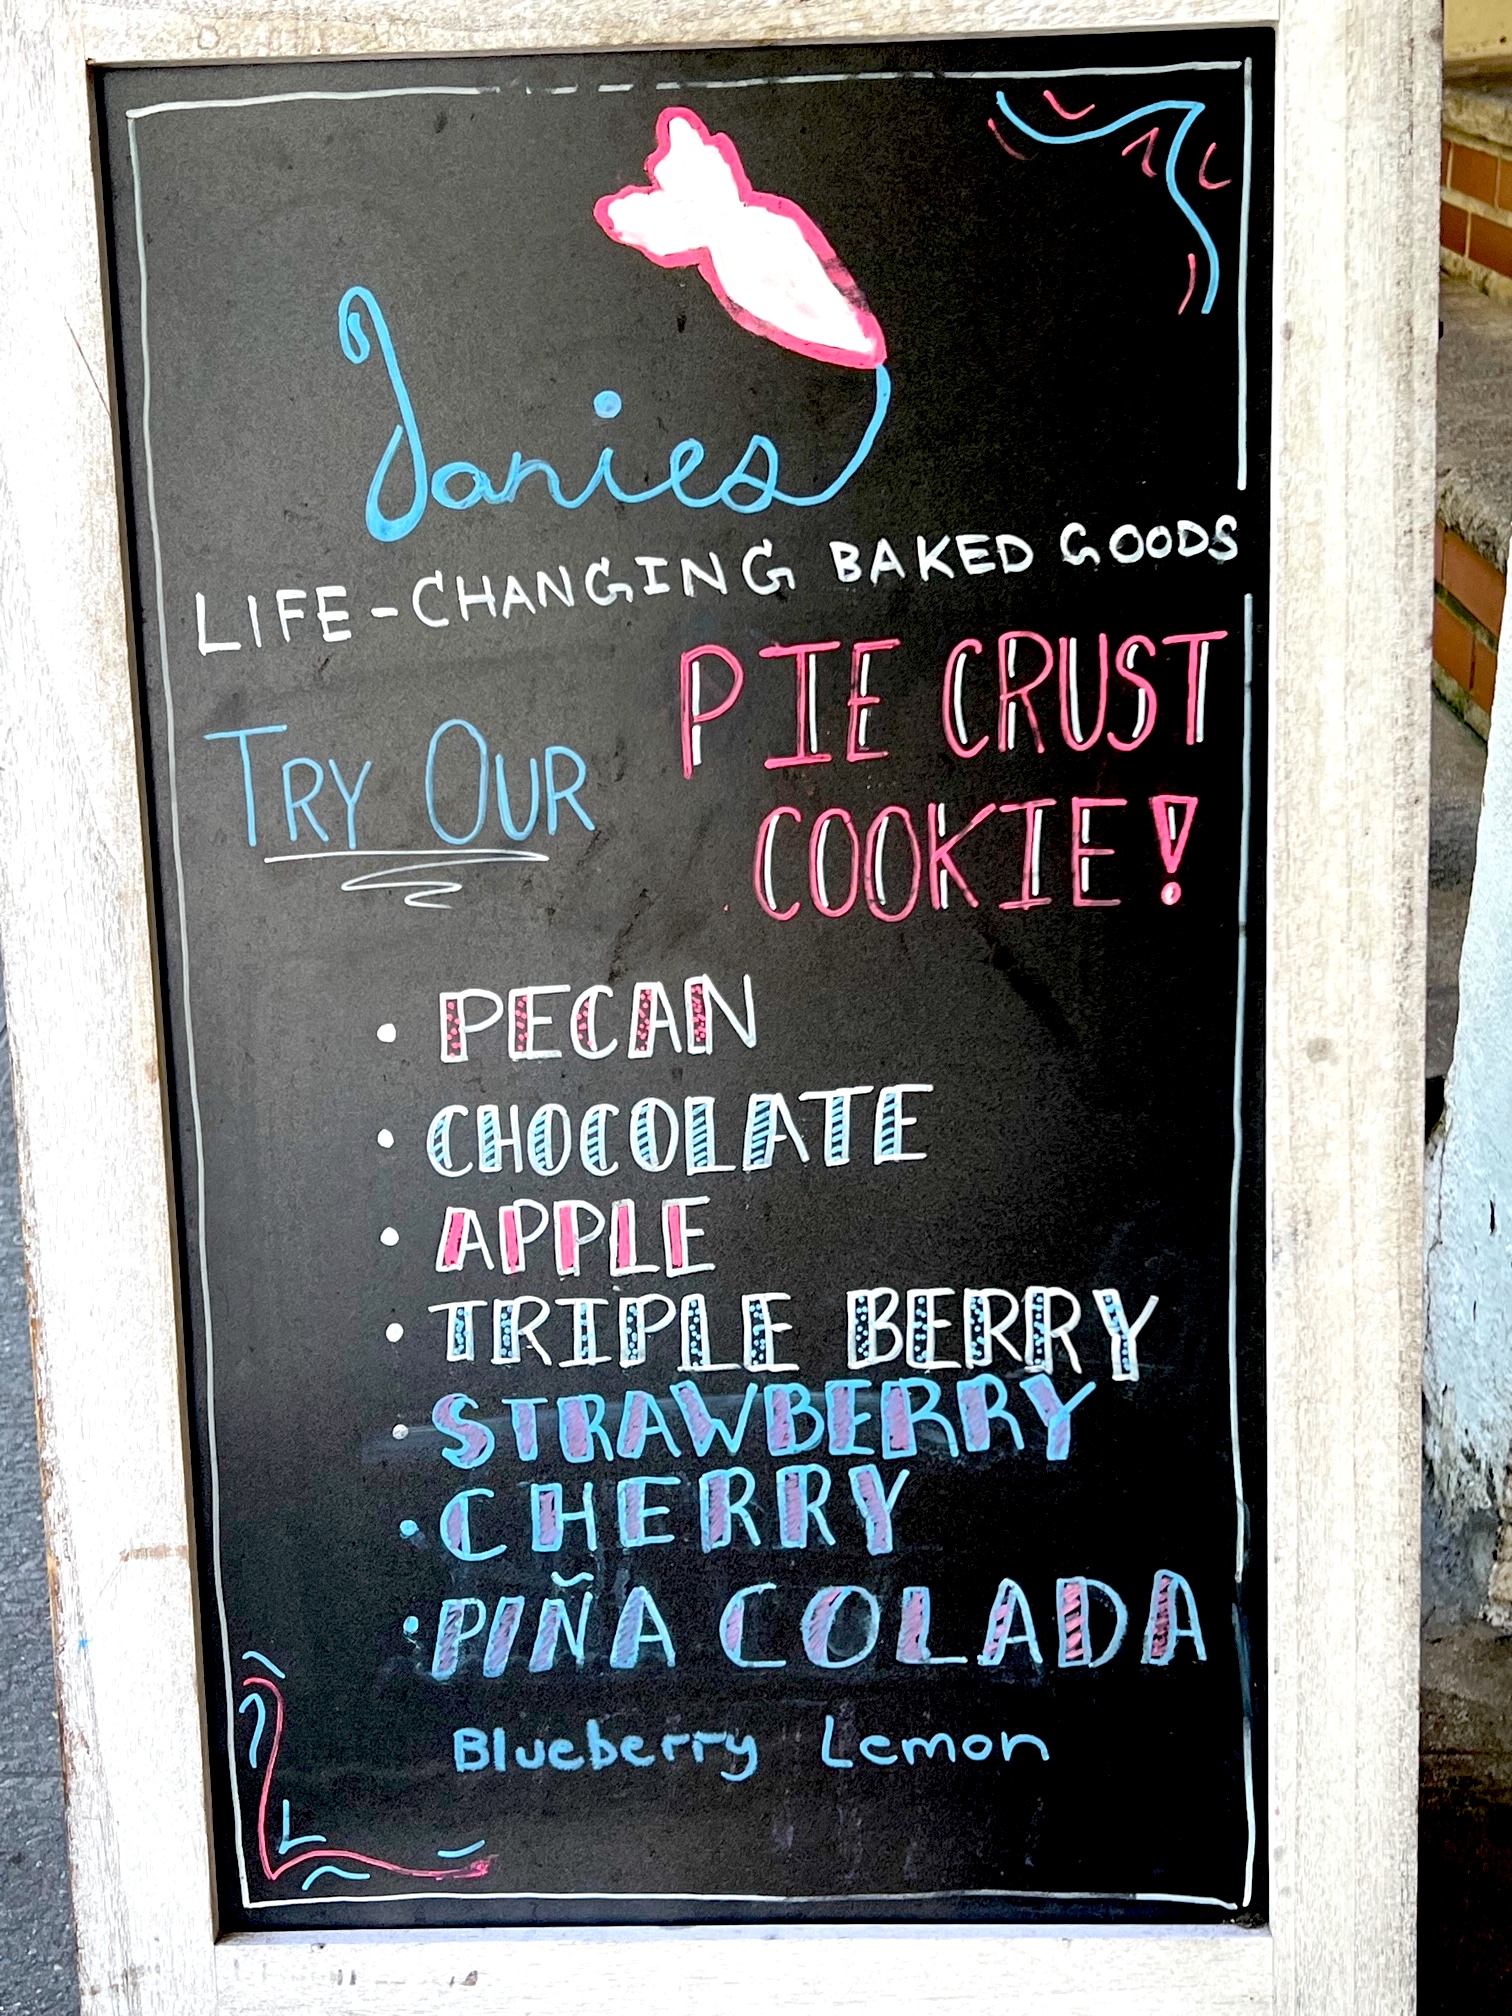 Janies
LIFE-CHANGING BAKED GOODS
TRY OUR
PIE CRUST
COOKIE!
• PECAN
• CHOCOLATE
• APPLE
• TRIPLE BERRY
• STRAWBERRY
• CHERRY
• PIÑA COLADA
Blueberry Lemon